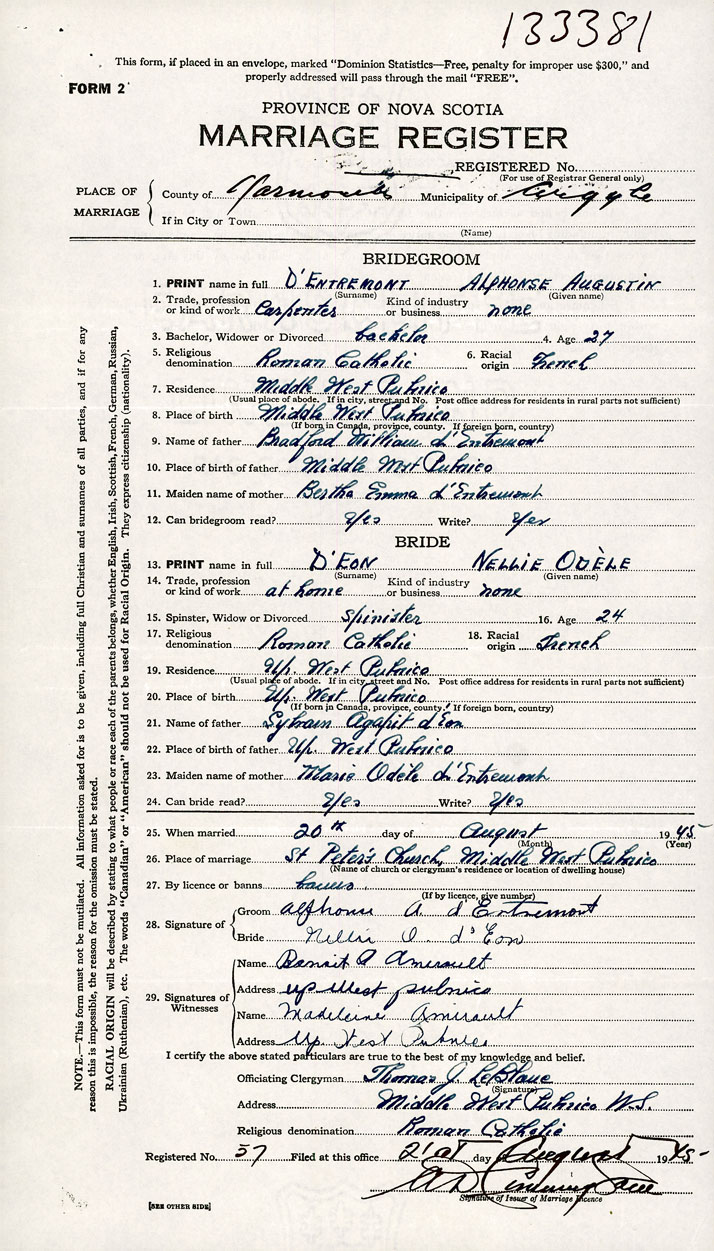 133381
This form, if placed in an envelope, marked "Dominion Statistics—Free, penalty for improper use $300," and
properly addressed will pass through the mail "FREE".
FORM 2
PROVINCE OF NOVA SCOTIA
MARRIAGE REGISTER
REGISTERED No.
(For use of Registrar General only)
PLACE OF MARRIAGE
County of Yarmouth Municipality of Argyle
If in City or Town
(Name)
BRIDEGROOM
1. PRINT name in full D'ENTREMONT ALPHONSE AUGUSTIN
(Surname) (Given name)
2. Trade, profession or kind of work Carpenter Kind of industry or business none
3. Bachelor, Widower or Divorced bachelor 4. Age 27
5. Religious denomination Roman Catholic 6. Racial origin French
7. Residence Middle West Pubnico
(Usual place of abode. If in city, street and No. Post office address for residents in rural parts not sufficient)
8. Place of birth Middle West Pubnico
(If born in Canada, province, county. If foreign born, country)
9. Name of father Bradford William d'Entremont
10. Place of birth of father Middle West Pubnico
11. Maiden name of mother Bertha Emma d'Entremont
12. Can bridegroom read? Yes Write? Yes
BRIDE
13. PRINT name in full D'EON NELLIE ODÈLE
(Surname) (Given name)
14. Trade, profession or kind of work at home Kind of industry or business none
15. Spinster, Widow or Divorced Spinister 16. Age 24
17. Religious denomination Roman Catholic 18. Racial origin French
19. Residence Up. West Pubnico
(Usual place of abode. If in city, street and No. Post office address for residents in rural parts not sufficient)
20. Place of birth Up. West Pubnico
(If born in Canada, province, county. If foreign born, country)
21. Name of father Sylvain Agapit d'Eon
22. Place of birth of father Up. West Pubnico
23. Maiden name of mother Marie Odèle d'Entremont
24. Can bride read? Yes Write? Yes
25. When married 20th day of August 1945
(Month) (Year)
26. Place of marriage St Peter's Church, Middle West Pubnico
(Name of church or clergyman's residence or location of dwelling house)
27. By licence or banns banns
(If by licence, give number)
28. Signature of
Groom Alphonse A. d'Entremont
Bride Nellie O. d'Eon
29. Signatures of Witnesses
Name Benoit A Amirault
Address up West pubnico
Name Madeleine Amirault
Address Up. West Pubnico
I certify the above stated particulars are true to the best of my knowledge and belief.
Officiating Clergyman Thomas J. LeBlanc
(Signature)
Address Middle West Pubnico N.S.
Religious denomination Roman Catholic
Registered No. 57 Filed at this office 21st day August 1945
Signature of Issuer of Marriage Licence
[SEE OTHER SIDE]
NOTE.—This form must not be mutilated. All information asked for is to be given, including full Christian and surnames of all parties, and if for any
reason this is impossible, the reason for the omission must be stated.
RACIAL ORIGIN will be described by stating to what people or race each of the parents belongs, whether English, Irish, Scottish, French, German, Russian,
Ukrainian (Ruthenian), etc. The words "Canadian" or "American" should not be used for Racial Origin. They express citizenship (nationality).